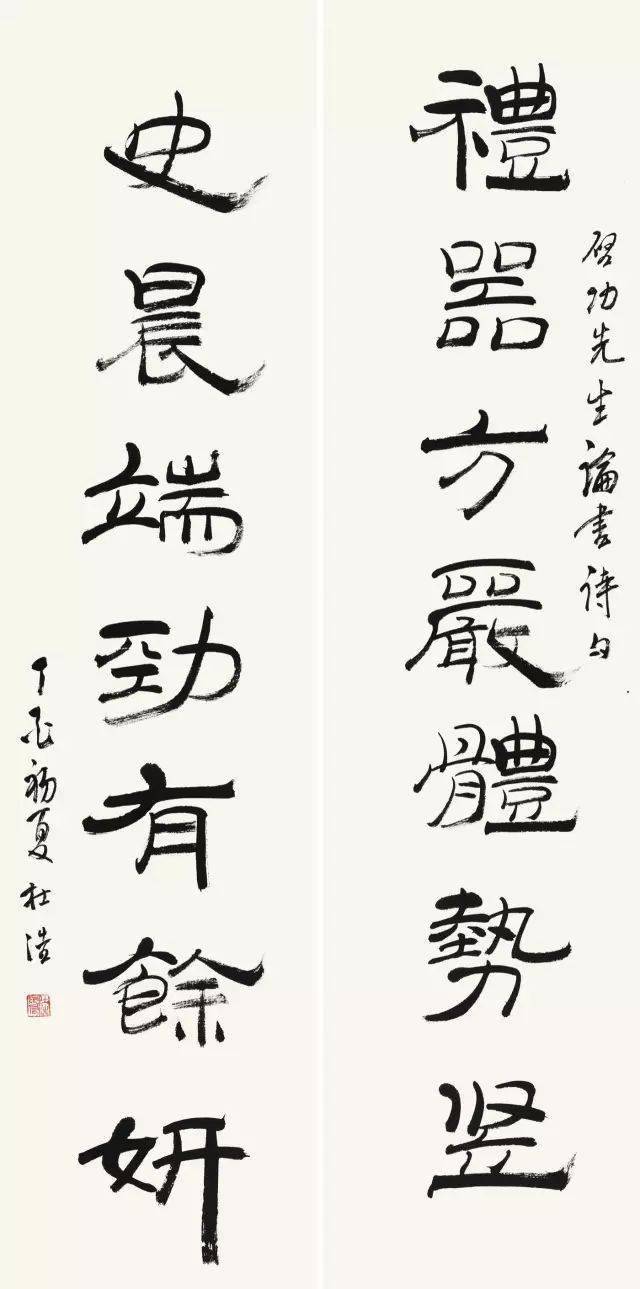 啓功先生論書诗句
禮器方嚴體勢竖
史晨端勁有餘妍
丁酉初夏杜浩